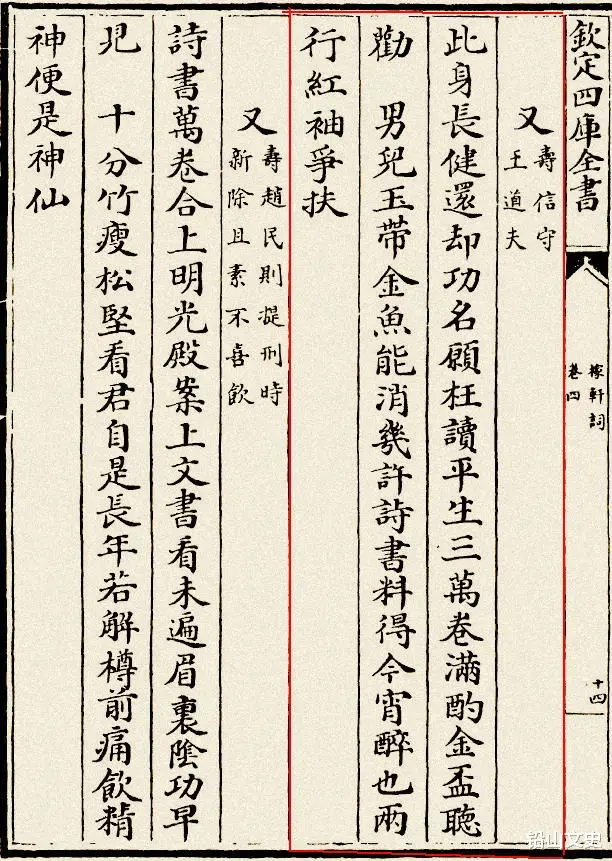 欽定四庫全書
稼軒詞
卷四
十四
又
壽信守
王道夫
此身長健還却功名願枉讀平生三萬卷滿酌金盃聽
勸　男兒玉帶金魚能消幾許詩書料得今宵醉也兩
行紅袖爭扶
又
壽趙民則提刑時
新除且素不喜飲
詩書萬卷合上明光殿案上文書看未遍眉裏陰功早
見　十分竹瘦松堅看君自是長年若解樽前痛飲精
神便是神仙
铅山文史